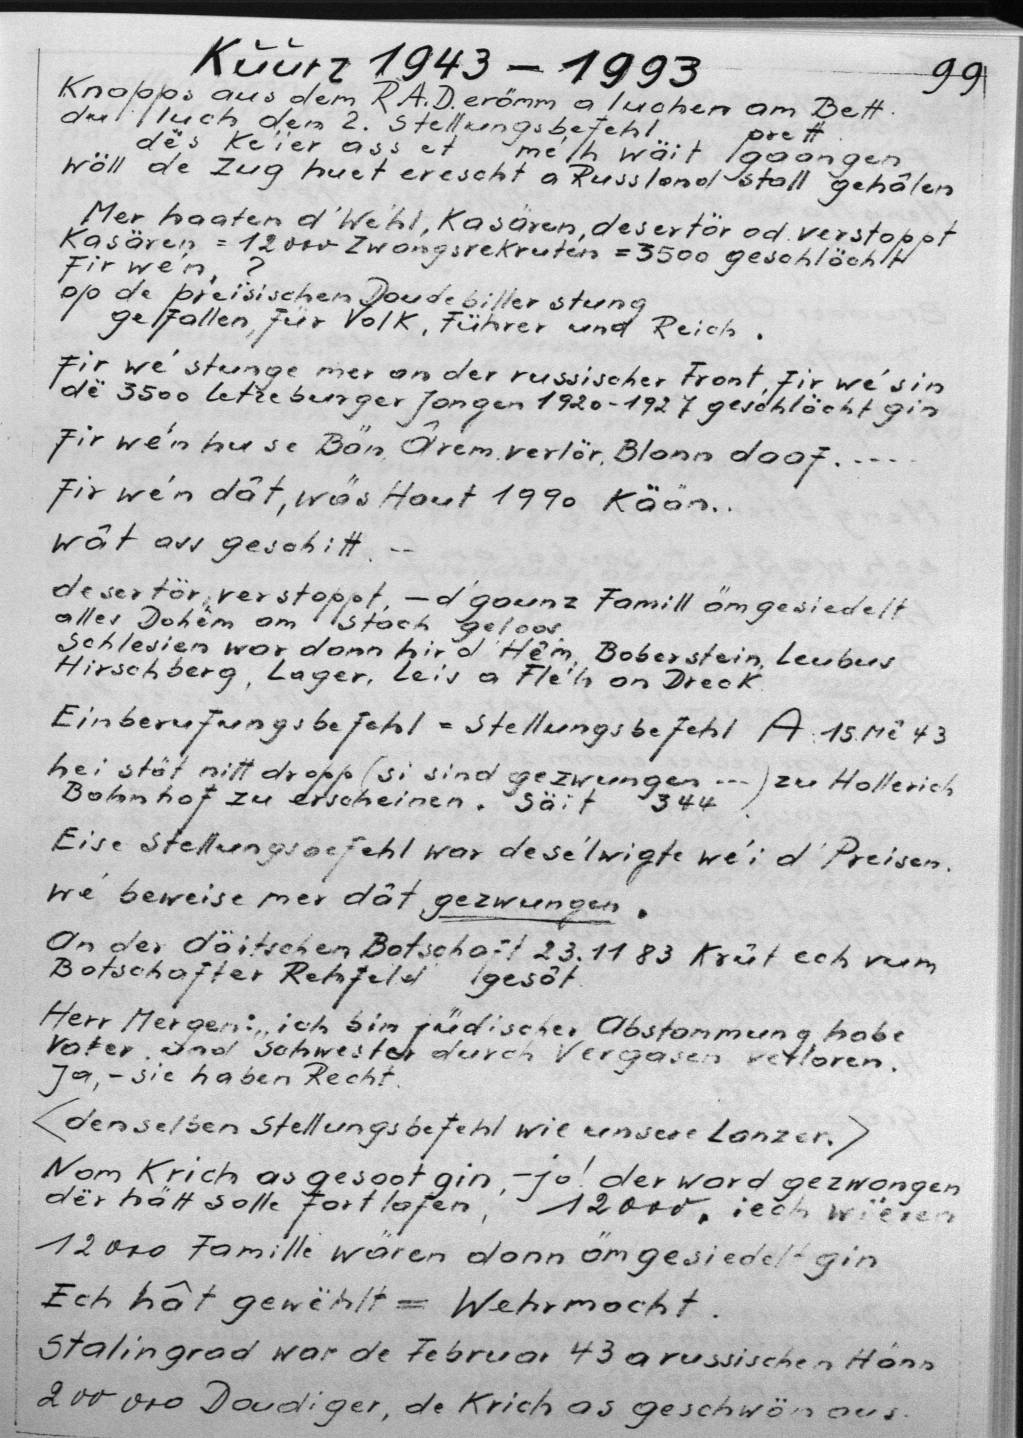 Kuurz 1943 – 1993
99
Knapps aus dem R.A.D. erömm a luchen am Bett.
du luch den 2. Stellungsbefehl. prett
dës Keïer ass et méh wäit gaangen
wöll de Zug huet erescht a Russland stall gehâlen
Mer haaten d'Wéhl, Kasären, desertör od. verstoppt
Kasären = 12000 Zwangsrekruten = 3500 geschlöcht
Fir wén ?
op de préisischen Doudebiller stung
gefallen für Volk, Führer und Reich.
Fir wé stunge mer an der russischer Front, Fir wé sin
dë 3500 letzeburger Jongen 1920-1927 geschlöcht gin
Fir wén hu se Bön. Ârem. verlör. Blann daaf. -----
Fir wén dât, wäs Haut 1990 Kään..
wât ass geschitt. --
desertör, verstoppt. – d'gaunz Famill ömgesiedelt
alles Dohêm am Stach geloos.
Schlesien war dann hir d'Hêm. Boberstein. Leubus
Hirschberg, Lager. Leis a Fléh an Dreck.
Einberufungsbefehl = Stellungsbefehl A. 15. Mê 43
hei stöt nitt dropp (si sind gezwungen ---) zu Hollerich
Bahnhof zu erscheinen. Säit 344
Eise Stellungsbefehl war desélwigte wéi d'Preisen.
wé beweise mer dât gezwungen.
An der däitschen Botschaft 23.11 83 Krût ech vum
Botschafter Rehfeld gesôt.
Herr Mergen: „ich bin jüdischer Abstammung habe
Vater und Schwester durch Vergasen verloren.
Ja, – sie haben Recht.
<denselben Stellungsbefehl wie unsere Lanzer.>
Nom Krich as gesoot gin, – jo! der ward gezwangen
dër hätt solle fortlafen, 12000. iech wiëren
12000 Famille wären dann ömgesiedelt gin
Ech hât gewëhlt = Wehrmacht.
Stalingrad war de Februar 43 a russischen Hänn
200 000 Daudiger, de Krich as geschwön aus.